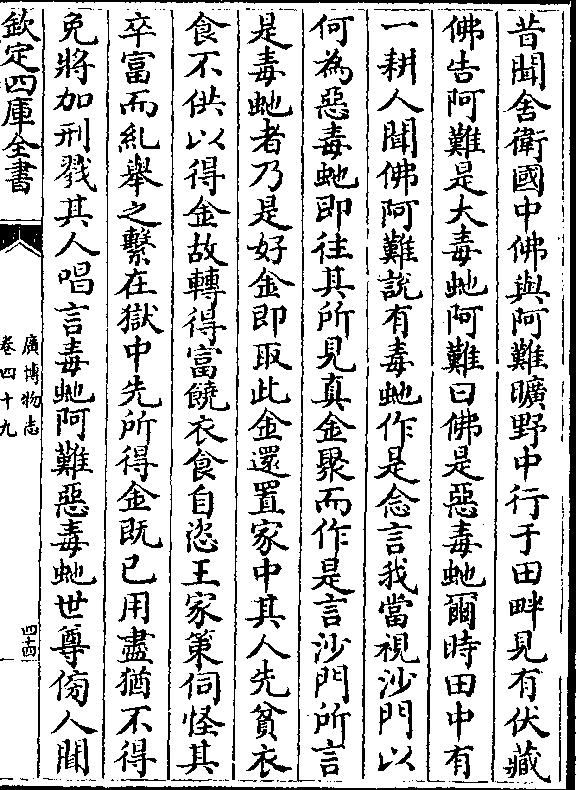 昔聞舍衛國中佛與阿難曠野中行于田畔見有伏藏
佛告阿難是大毒虵阿難曰佛是惡毒虵爾時田中有
一耕人聞佛阿難說有毒虵作是念言我當視沙門以
何為惡毒虵即往其所見真金聚而作是言沙門所言
是毒虵者乃是好金即取此金還置家中其人先貧衣
食不供以得金故轉得富饒衣食自恣王家策伺怪其
卒富而糺舉之繫在獄中先所得金既已用盡猶不得
免將加刑戮其人唱言毒虵阿難惡毒虵世尊傍人聞
欽定四庫全書
廣博物志
卷四十九
四十四